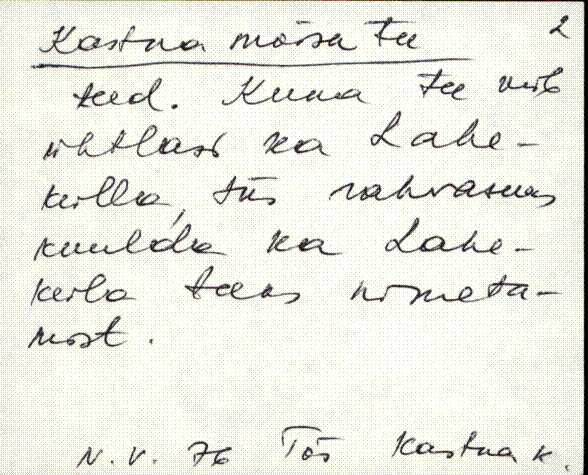 Kastna mõisa tee 2
teed. Kuna tee viib
ühtlasi ka Lahe-
külla, siis rahvasuus
kuulda ka Lahe-
küla teeks nimeta-
mist.
N. V. 76 Tõs Kastna k.